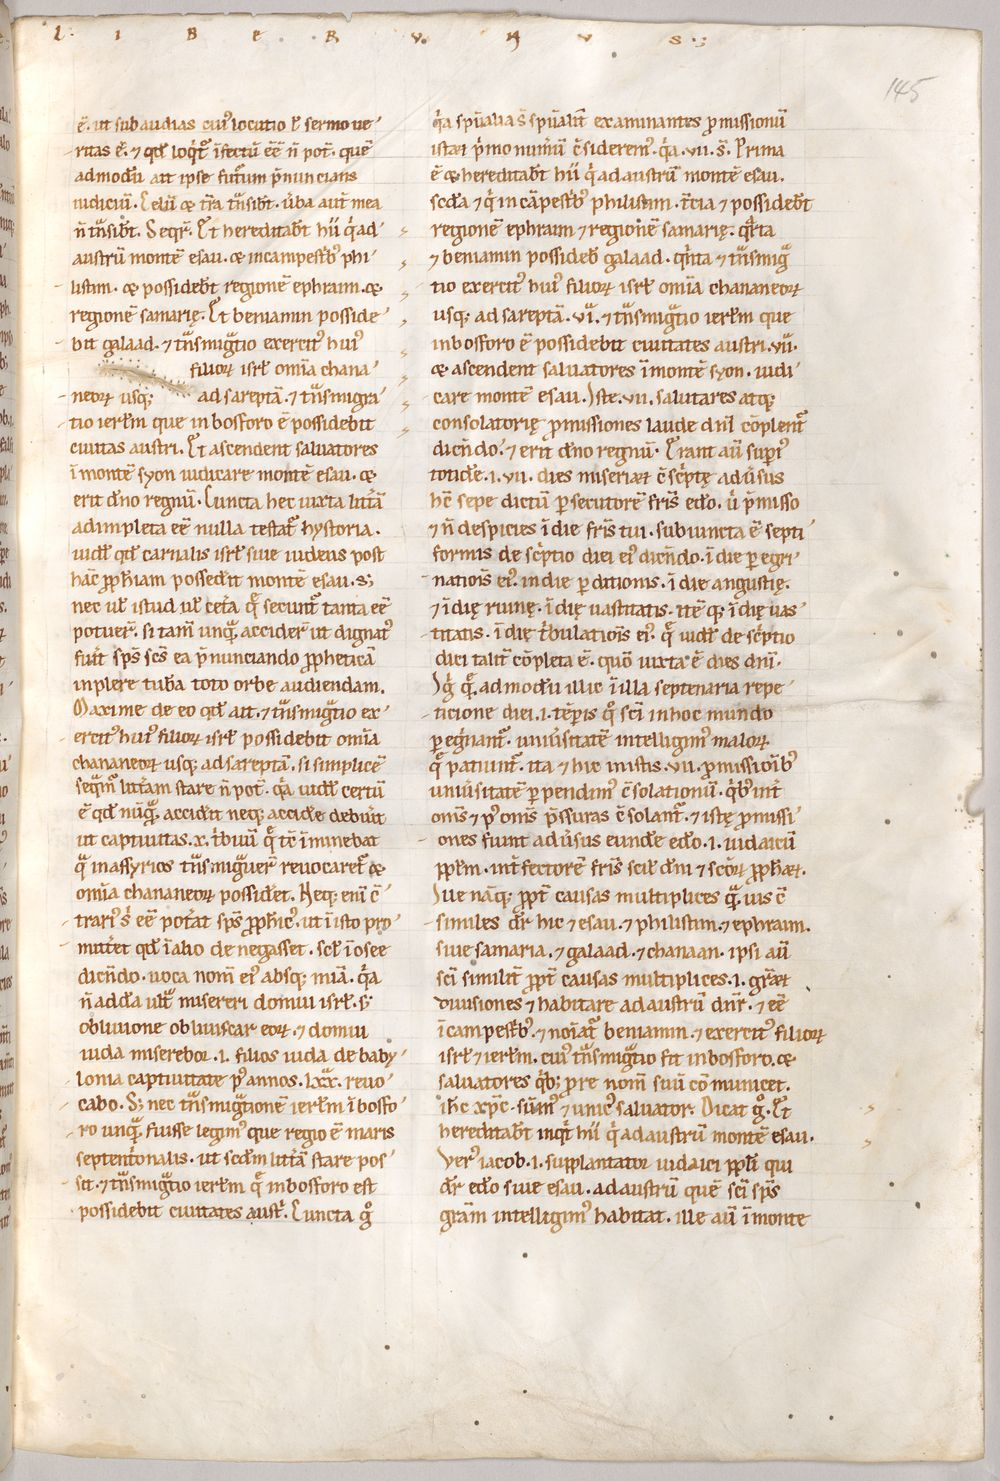 L I B E R V N V S
145
ē. ut subaudias cuiꝰ locutio ł sermo ue
ritas ē. ⁊ qđ loqͥt᷑ īfectū ēē n̄ pot̄. quē
admodū ait ipse futūrum p̄nuncians
iudiciū. Celū ⁊ t̄ra t̄nsibt̄. ūba aut̄ mea
n̄ t̄nsibt̄. Seqͥr. Et hereditabt̄ hii qͥ ad
austrū montē esau. ⁊ incampestͥbꝰ phi
listim. ⁊ possidebt̄ regionē ephraim. ⁊
regionē samarię. Et beniamin posside
bit galaad. ⁊ t̄nsmigͣtio exercitꝰ huiꝰ
filioꝝ isrł omīa chana
neoꝝ usq; ad sareptā. ⁊ t̄nsmigra
tio ierłm que in bosforo ē possidebit
ciuitas austri. Et ascendent saluatores
ī montē syon iudicare montē esau. ⁊
erit dn̄o regnū. Cuncta hec iuxta litt̄ā
adimpleta eē nulla testat᷑ hystoria.
uidł qđ carnalis isrł siue iudeus post
hāc ꝓph̄iam possedit montē esau. s;
nec uł istud uł cet̄a qͣ secunt᷑ tanta eē
potuer̄. si tam̄ unqͣ accider̄ ut dignat᷑
fuit sp̄s sc̄s ea p̄nunciando ꝓpheticā
inplere tubā toto orbe audiendam.
Maxime de eo qđ ait. ⁊ t̄nsmigͣtio ex
ercitꝰ huiꝰ filioꝝ isrł possidebit omīa
chananeoꝝ usq; ad sareptā. si simplicē
seqͣm̄ litt̄am stare n̄ pot̄. qͥa uidł certū
ē qđ nūqͣ accidit neq; accide debuit
ut captiuitas .x. tͥbuū qͣ tc̄ īminebat
qͣ in assyrios t̄nsmigͣuer̄ reuocaret᷑ ⁊
omīa chananeoꝝ possidet. Neq; enī c̄
trariꝰ sͥ eē pot̄at sp̄s ꝓph̄icꝰ. ut ī isto pro
mitt̄et qđ ī alio denegasset. scł ī osee
dicēdo. uoca nom̄ eiꝰ absq; mīā. qͥa
n̄ addā ultͣ misereri domui isrł. s;
obliuione obliuiscar eoꝝ. ⁊ domui
iuda miserebor .i. filios iuda de baby
lonia captiuitate pꝰ annos .lxx. reuo
cabo. S; nec t̄nsmigͣtionē ierłm ī bosfo
ro unqͣ fuisse legimꝰ que regio ē maris
septentͥonalis. ut scđm litt̄ā stare pos
sit. ⁊ t̄nsmigͣtio ierłm qͣ in bosforo est
possidebit ciuitates austͥ. Cuncta gͦ
qͥa sp̄ualia s̄ sp̄ualit̄ examinantes ꝓmissionū
istaꝝ pͥmo num̄ū c̄siderem̄. qͥa .vii. s̄. Prima
ē ⁊ hereditabt̄ hii qͥ ad austrū montē esau.
scđa ⁊ qͥ in cāpestͥbꝰ philistim. t̄cia ⁊ possidebt̄
regionē ephraim ⁊ regionē samarię. qͣrta
⁊ beniamin possideb̄ galaad. qͥnta ⁊ t̄nsmigͣ
tio exercitꝰ huiꝰ filioꝝ isrł omīa chananeoꝝ
usq; ad sareptā. vi. ⁊ t̄nsmigͣtio ierłm que
in bosforo ē possidebit ciuitates austri. vii.
⁊ ascendent saluatores ī montē syon. iudi
care montē esau. Iste .vii. salutares atq;
consolatorię ꝓmissiones laude dn̄i cōplent᷑
dicēdo. ⁊ erit dn̄o regnū. Erant aū supiꝰ
totidē .i. vii. dies miseriaꝝ c̄sͥptę adūsus
hc̄ sepe dictū ꝑsecutorē fr̄is edō. ū p̄misso
⁊ n̄ despicies ī die fr̄is tui. subiuncta ē septi
formis descͥptio diei eiꝰ dicēdo. ī die ꝑegri
natiōis eiꝰ. in die ꝑditionis. ī die angustię.
⁊ ī dię ruinę. ī dię uastitatis. itē q; ī dię uas
titatis. ī dię tͥbulatiōis eiꝰ. qͣ uidł descͥptio
diei talit̄ cōpleta ē. quō iuxta ē dies dn̄i.
Igͥ qͣ admodū illic ī illa septenaria repe
ticione diei .i. tēpis qͦ sc̄i in hoc mundo
ꝑegͥnant᷑. uniūsitatē intelligimꝰ maloꝝ
qͣ patiunt᷑. ita ⁊ hic in istis .vii. ꝓmissiōibꝰ
uniūsitatē ꝑpendimꝰ c̄solationū. qͥbꝰ int̄
om̄s ⁊ pꝰ om̄s p̄ssuras c̄solant᷑. ⁊ istę ꝓmissi
ones fiunt adūsus eundē edō .i. iudaicū
ppłm. int̄fectorē fr̄is scił dn̄i ⁊ sc̄oꝝ ꝓph̄aꝝ.
Siue nāq; ꝓpt̄ causas multiplices qͣ uis c̄
similes dr̄ hic ⁊ esau. ⁊ philistim. ⁊ ephraim.
siue samaria. ⁊ galaad. ⁊ chanaan. ipsi aū
sc̄i similit̄ ꝓpt̄ causas multiplices .i. gr̄aꝝ
diuisiones ⁊ habitare ad austrū dn̄r. ⁊ eē
ī campestͥbꝰ. ⁊ noīat᷑ beniamin. ⁊ exercitꝰ filioꝝ
isrł ⁊ ierłm. cuiꝰ t̄nsmigͣtio fit in bosforo. ⁊
saluatores qͥb; p̄re nom̄ suū cōmunicet.
ihc̄ xp̄c. sūmꝰ ⁊ unicꝰ saluator. Dicat gͦ. Et
hereditabt̄ inqͥt hii qͥ ad austrū montē esau.
Verꝰ iacob .i. supplantator iudaici ppłi qui
dr̄ edō siue esau. ad austrū quē sc̄i sp̄s
gr̄am intelligimꝰ habitat. ille aū ī monte